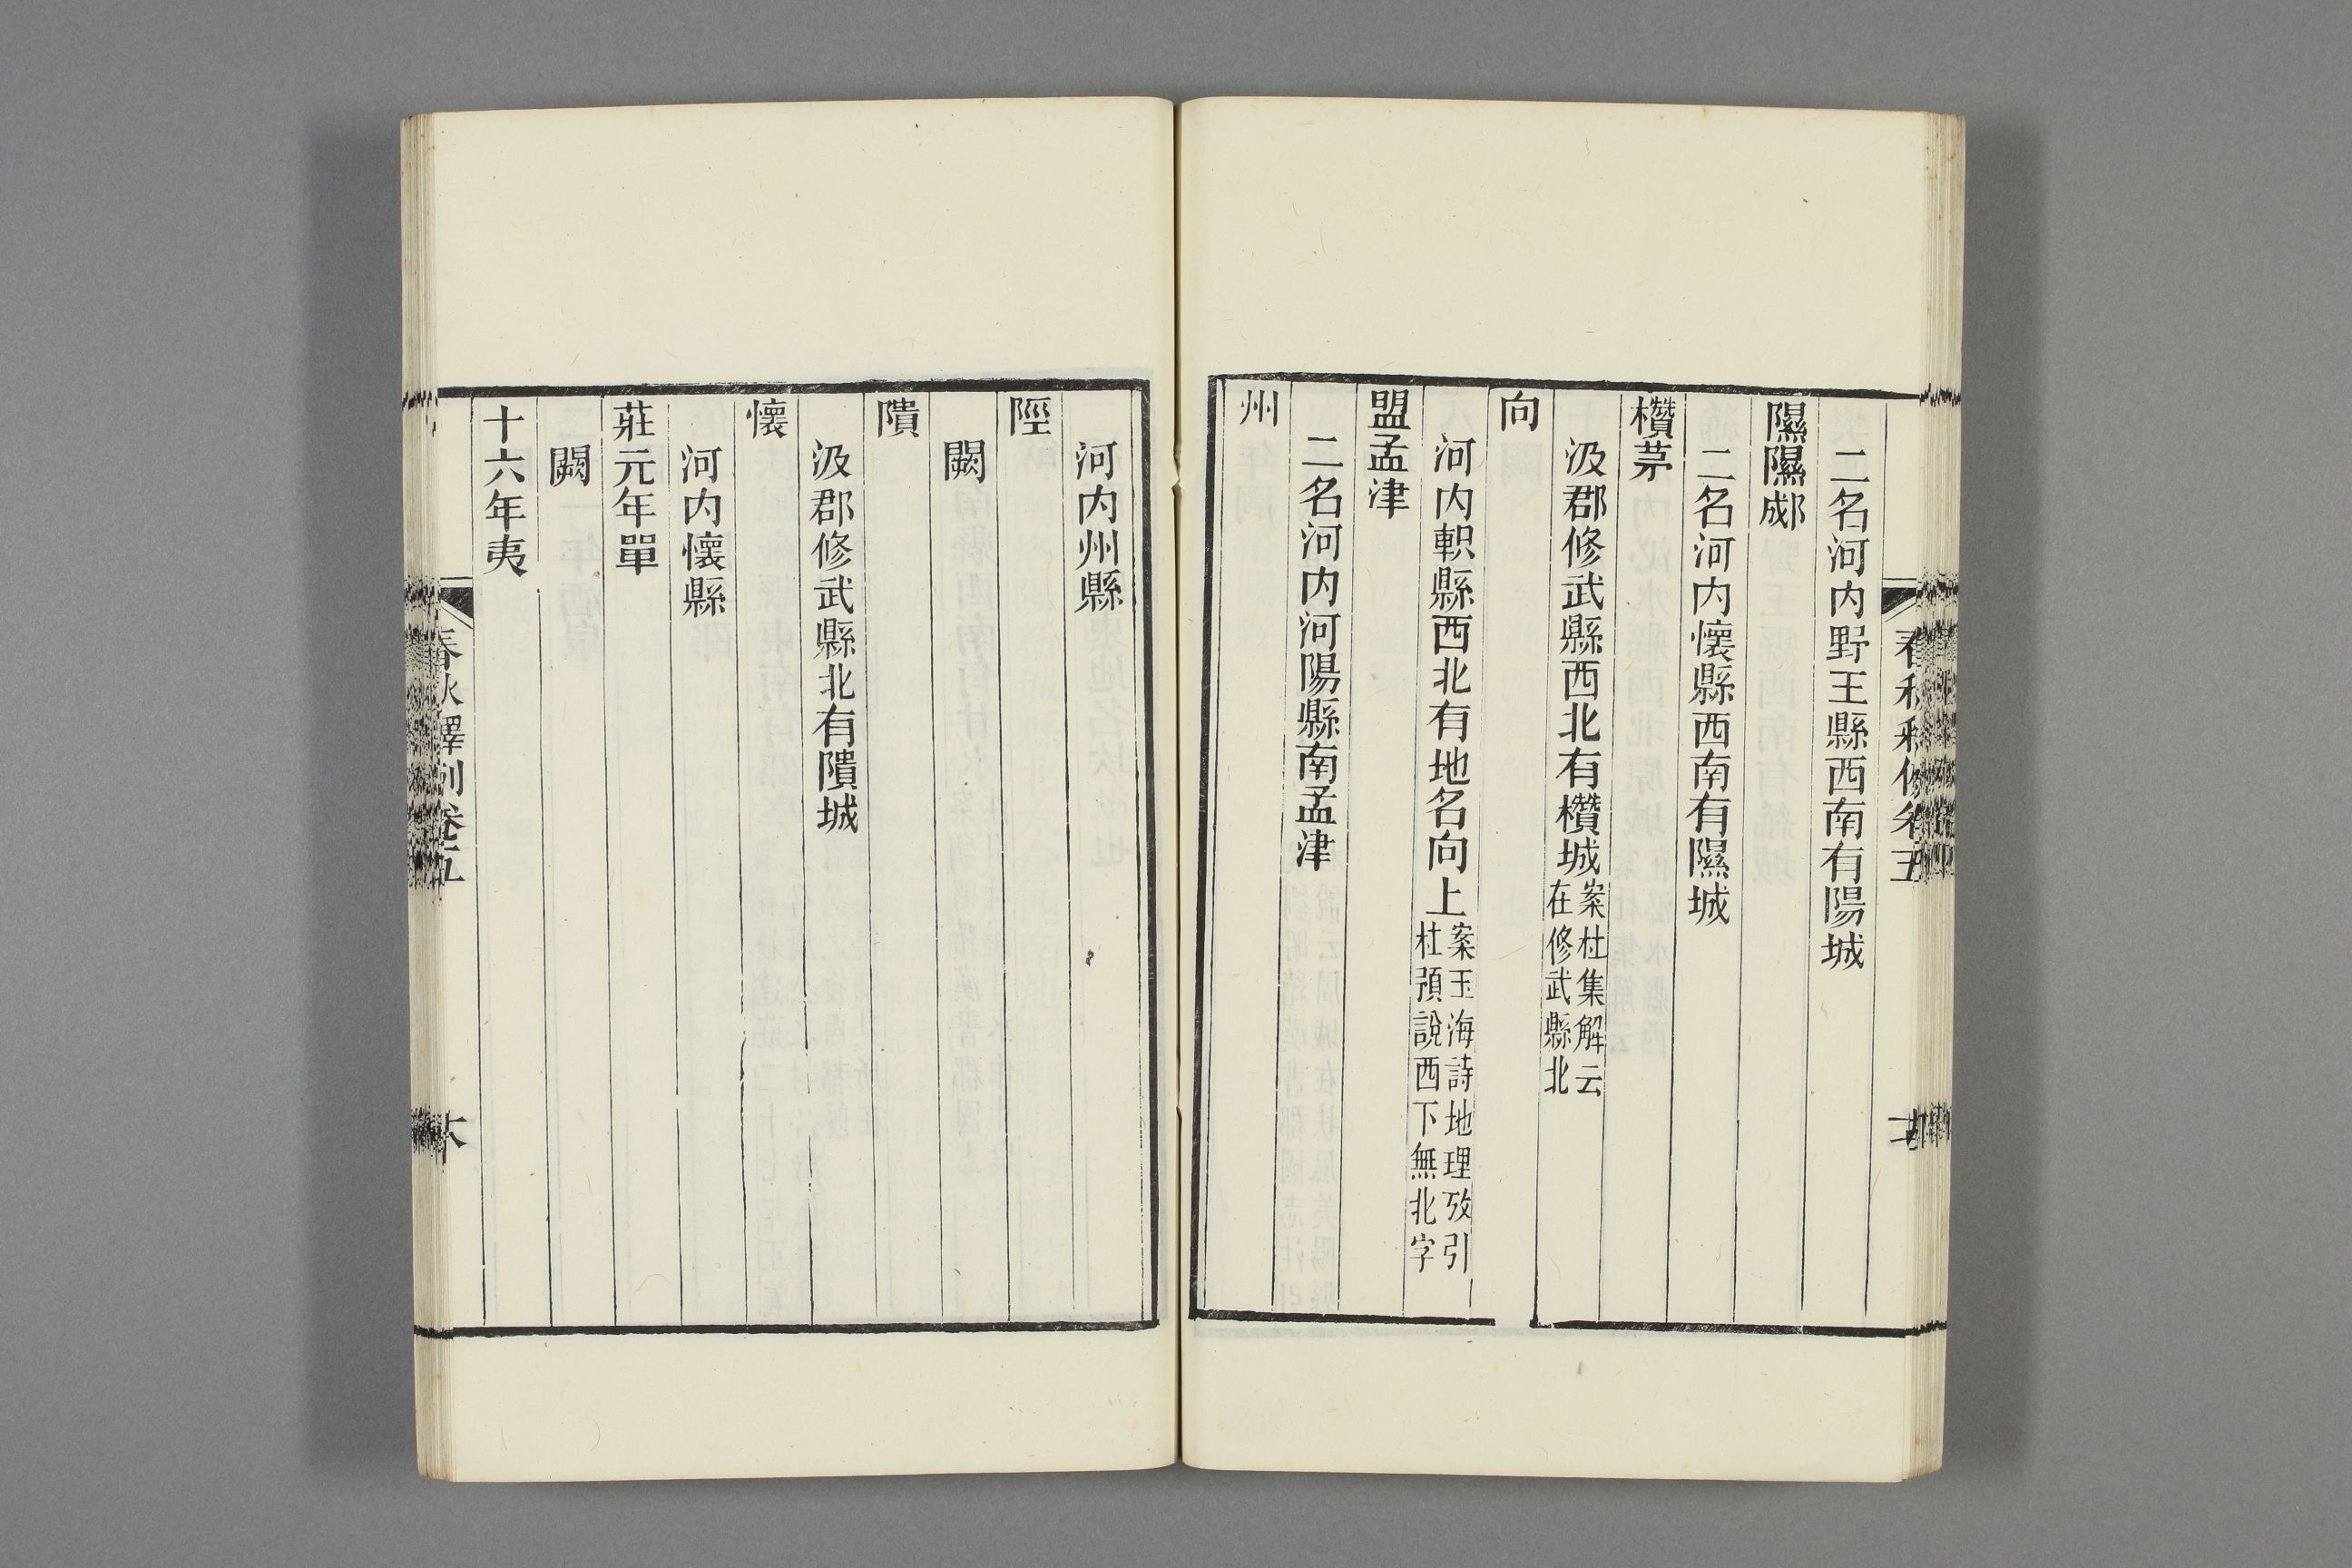 二名河内野王縣西南有陽城
隰隰郕
二名河内懷縣西南有隰城
欑茅
汲郡修武縣西北有欑城案杜集解云
在修武縣北
向
河内軹縣西北有地名向上案玉海詩地理攷引
杜預說西下無北字
盟孟津
二名河内河陽縣南孟津
州
河内州縣
陘
闕
隤
汲郡修武縣北有隤城
懷
河内懷縣
莊元年單
闕
十六年夷
春秋釋例卷五